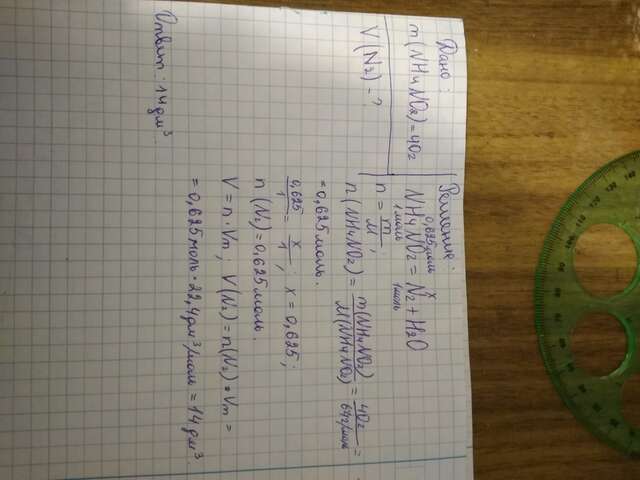 Дано:
m(NH4NO2)=40г
V(N2)-?
Решение:
0,625моль x
NH4NO2 = N2 + H2O
1моль 1моль
n = m/M;
n(NH4NO2) = m(NH4NO2)/M(NH4NO2) = 40г/64г/моль =
=0,625моль.
0,625/1 = x/1; x = 0,625;
n(N2)=0,625моль.
V = n·Vm; V(N2) = n(N2)·Vm =
= 0,625моль·22,4дм³/моль = 14дм³.
Ответ: 14дм³.